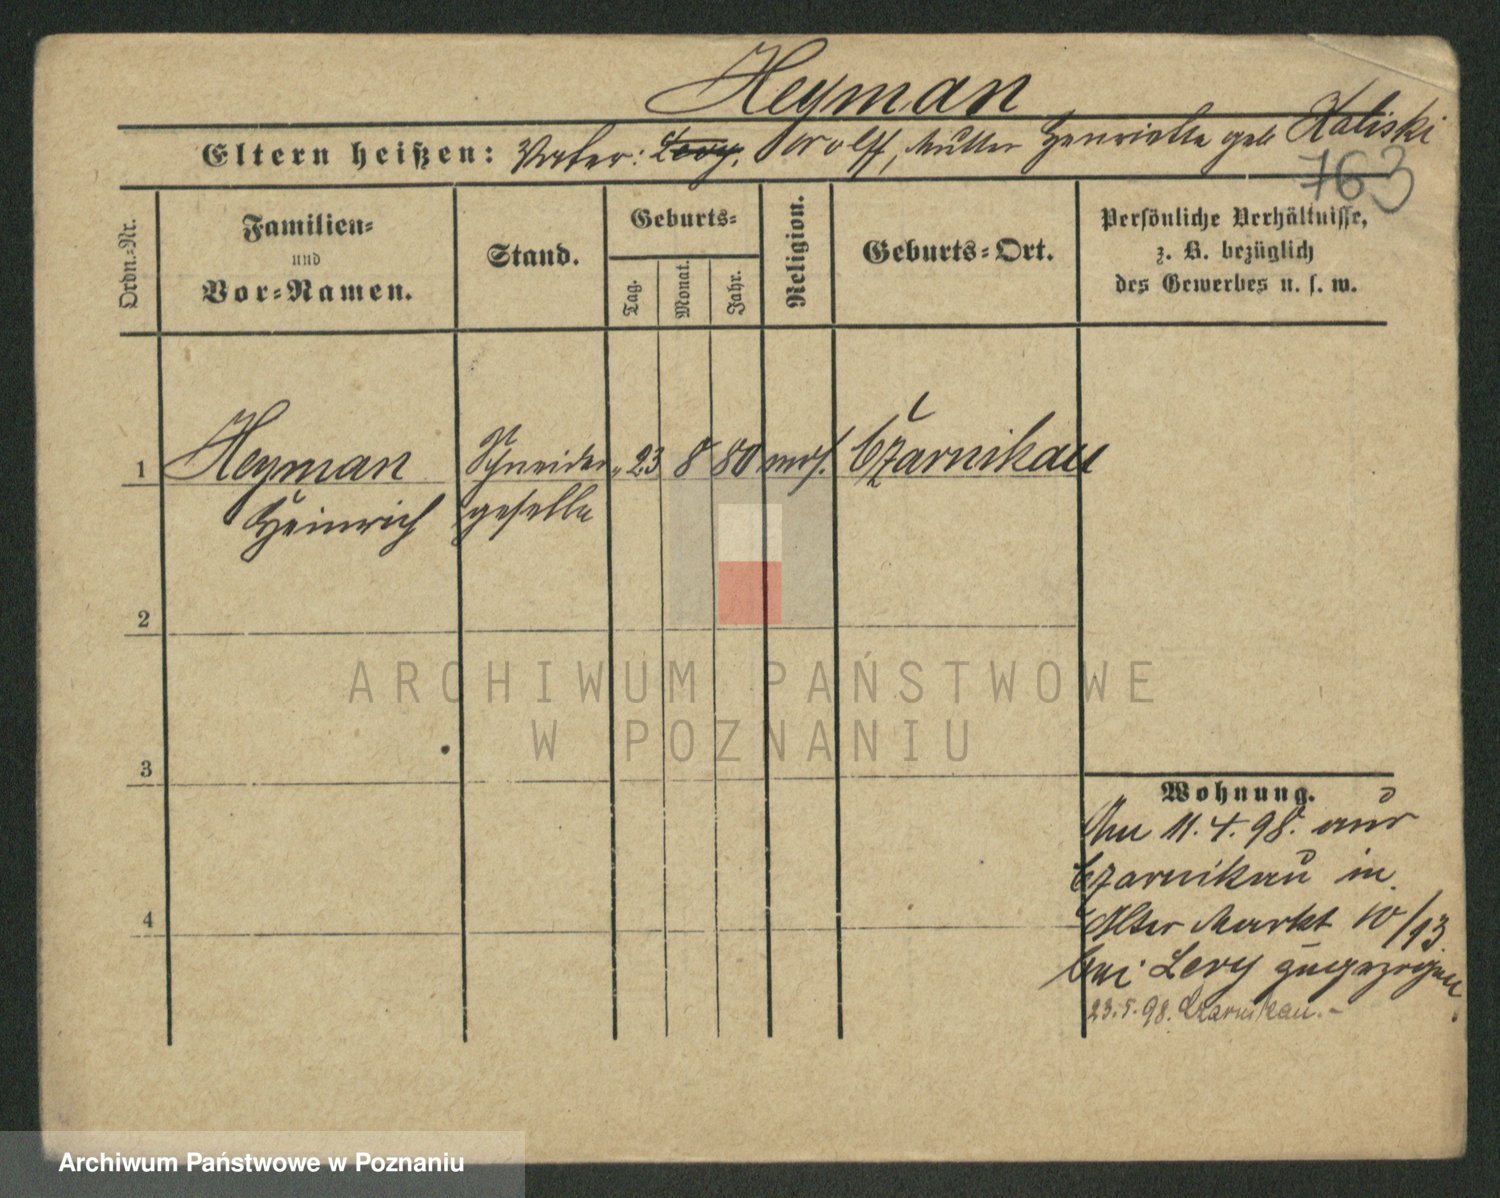 Heyman
Eltern heißen: Vater: Levy, Wolff, Mutter Henriette geb Kaliski
763
Ordn.-Nr.
Familien-
und
Vor-Namen.
Stand.
Geburts-
Tag.
Monat.
Jahr.
Religion.
Geburts-Ort.
Persönliche Verhältnisse,
z. B. bezüglich
des Gewerbes u. s. w.
1 Heyman Schneider- 23 8 80 mos. Czarnikau
Heinrich geselle
2
ARCHIWUM PAŃSTWOWE
W POZNANIU
3
Wohnung.
Am 11.4.98. aus
Czarnikau in
4 Alter Markt 10/13
bei Levy zugezogen
23.5.98. Czarnikau.-
Archiwum Państwowe w Poznaniu